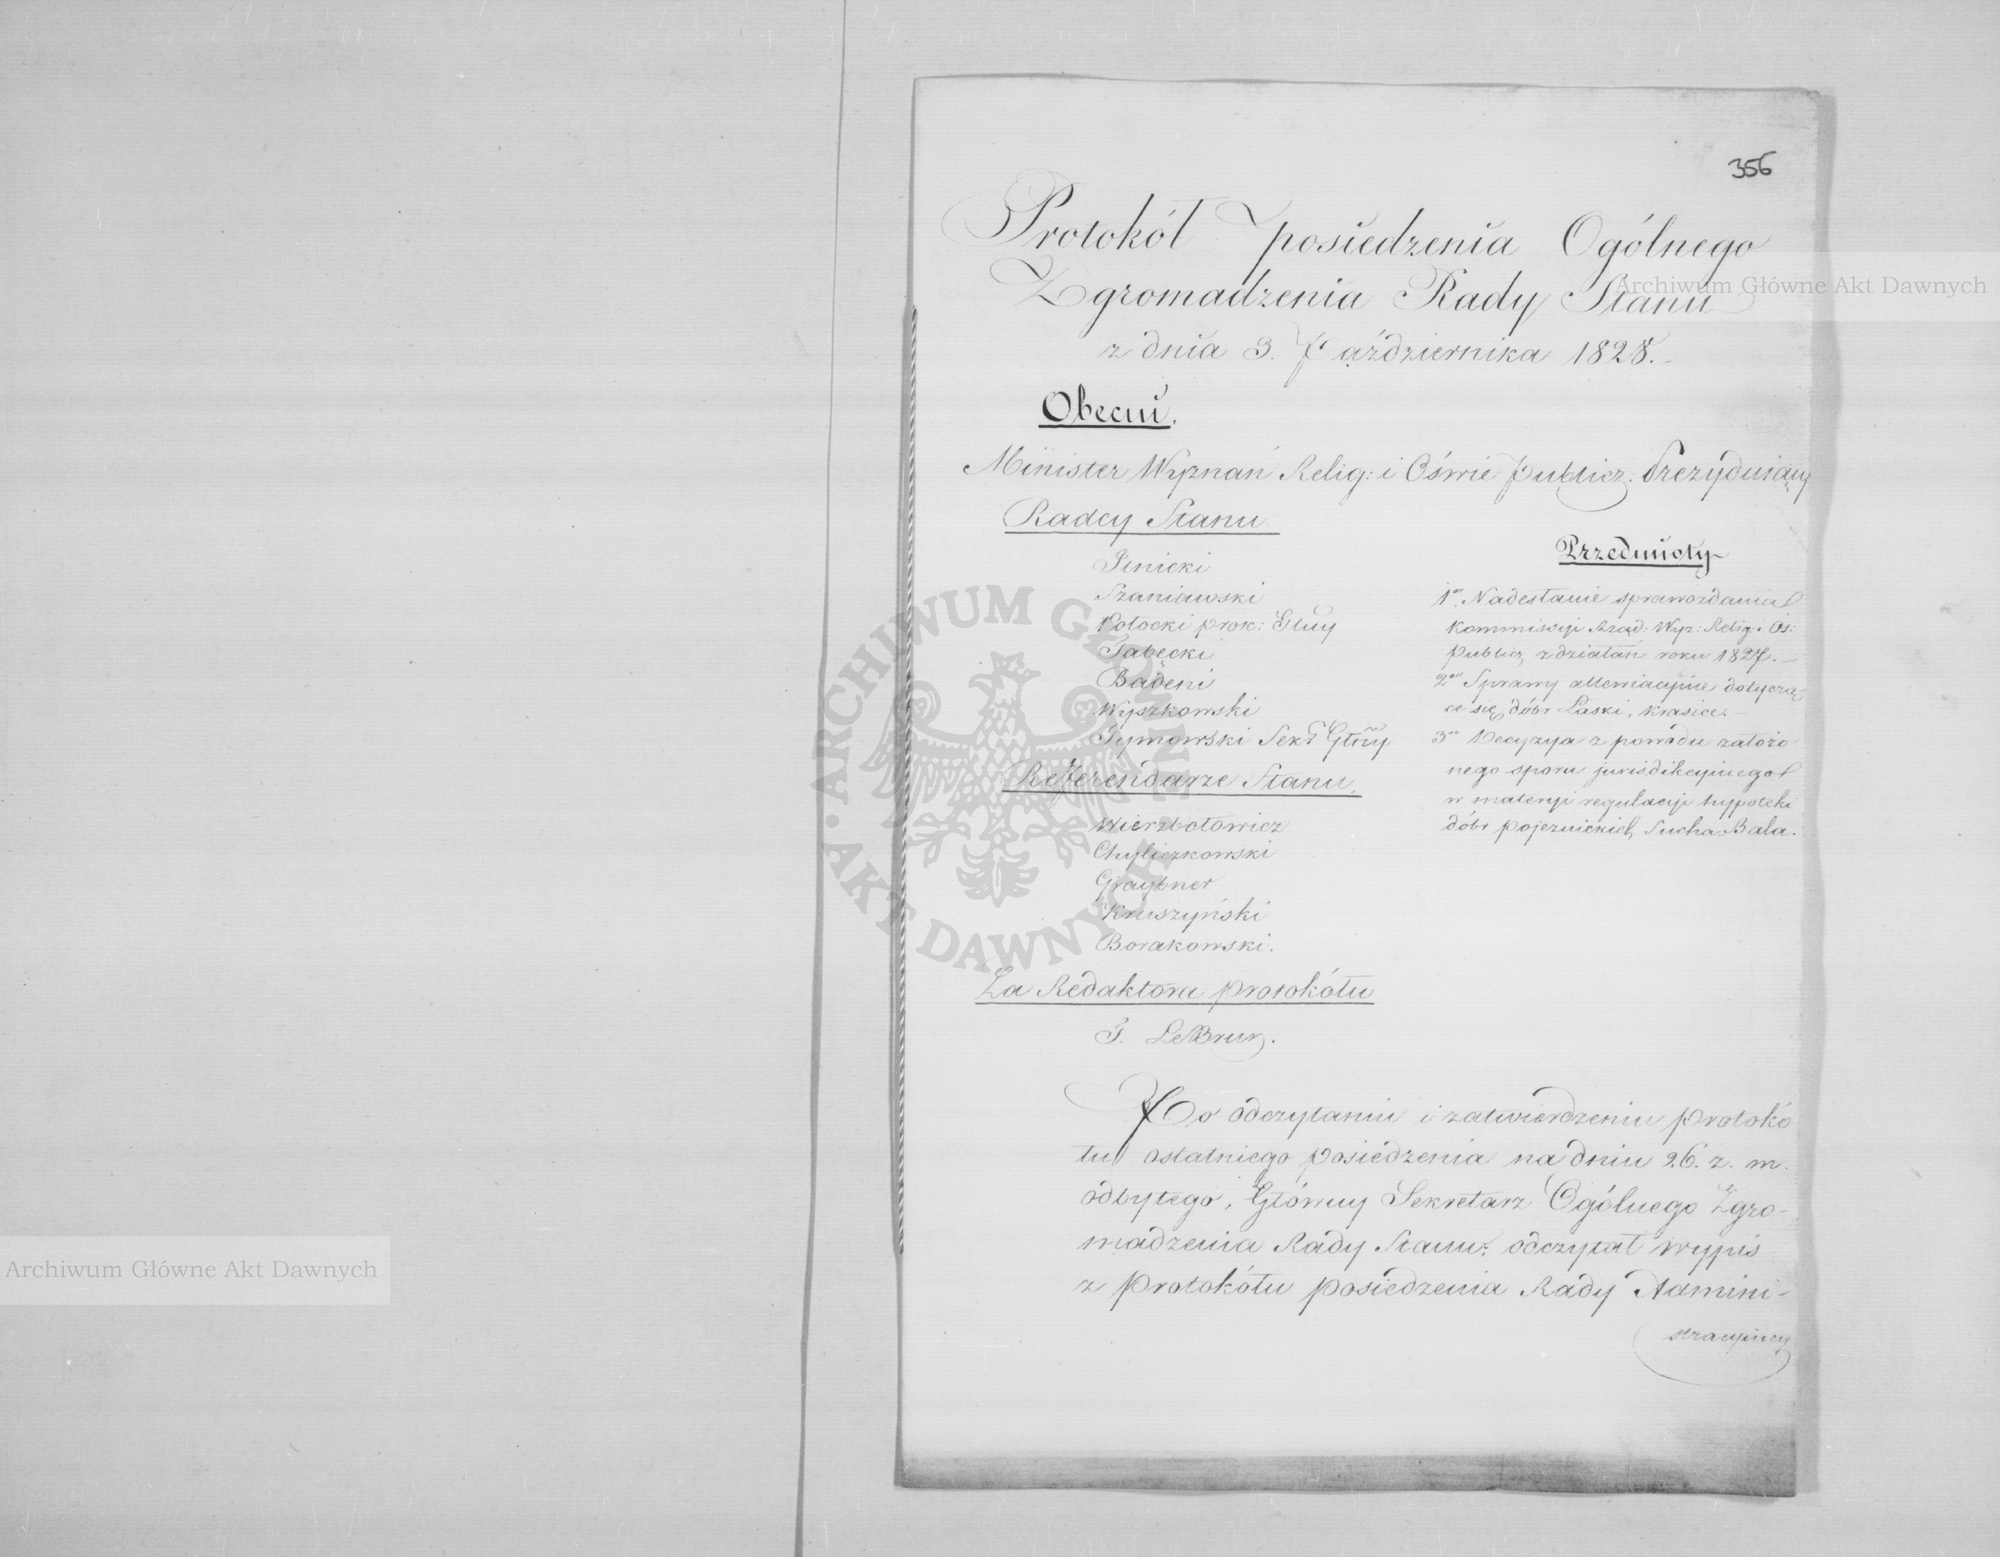 356
Protokół posiedzenia Ogólnego
Zgromadzenia Rady Stanu
z dnia 3. Października 1828.
Obecni.
Minister Wyznań Relig: i Oświe Publicz: Prezydujący
Radcy Stanu
Szaniawski
Potocki prok: Głny
Tabęcki
Badeni
Wyszkowski
Tymowski Sekr Głny
Referendarze Stanu.
Wierzbołowicz
Chyliczkowski
Graybner
Kruszyński
Borakowski.
Za Redaktora protokółu
J. LeBrun.
Przedmioty
1° Nadesłanie sprawozdania
Kommissyi Rząd: Wyz: Relig: i Oś:
Publicz, z działań roku 1827.
2° Sprawy dotyczą-
ce się dóbr Laski, Krasice.
3° Decyzya z powodu założo
nego sporu jurisdikcyinego
w materyi regulacyi hypoteki
dóbr pojezuickich Sucha Bala.
Po odczytaniu i zatwierdzeniu protokó
łu ostatniego posiedzenia na dniu 26. z. m.
odbytego, Główny Sekretarz Ogólnego Zgro-
madzenia Rady Stanu; odczytał wypis
z Protokółu posiedzenia Rady Admini-
stracyiney
Archiwum Główne Akt Dawnych
Archiwum Główne Akt Dawnych
ARCHIWUM GŁÓWNE
AKT DAWNYCH